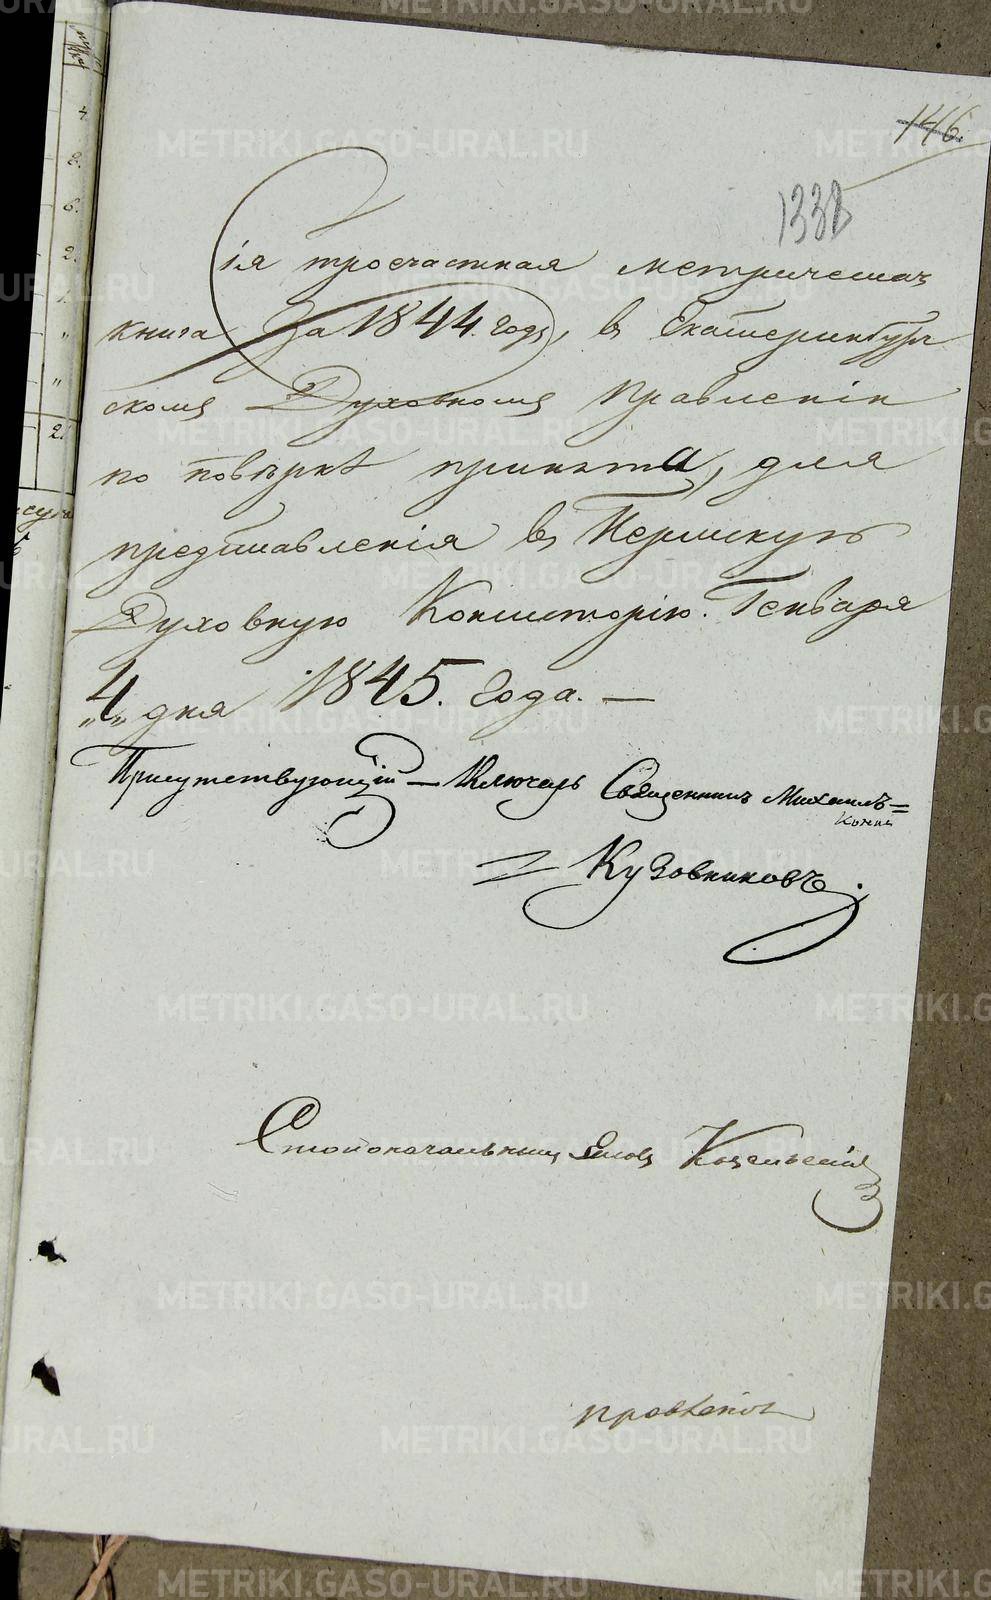 146.
1338
Сія троечастная метрическая
книга За 1844. годъ, въ Екатеринбург
скомъ Духовномъ Правленіи
по повѣркѣ принята, для
представленія въ Пермскую
Духовную Консисторію. Генваря
„4„ дня 1845. года. —
Присутствующій — Ключарь Священникъ Михаилъ =
= Кузовниковъ.
Столоначальникъ Яковъ Козельскій
METRIKI.GASO-URAL.RU